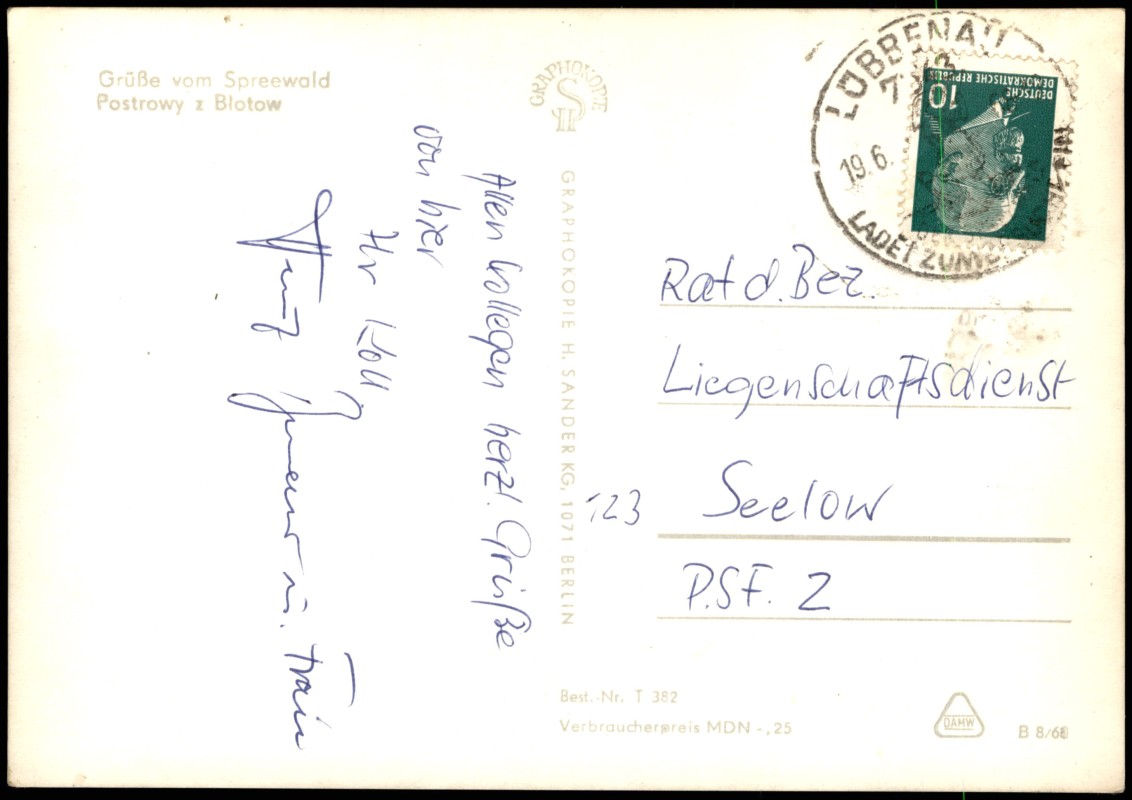 Grüße vom Spreewald
Postrowy z Błotow
GRAPHOKOPIE
GRAPHOKOPIE H. SANDER KG, 1071 BERLIN
Allen Kollegen herzl. Grüße
von hier
Ihr Koll.
u. Frau
LÜBBENAU
19.6.
LADET ZUM
DEUTSCHE
DEMOKRATISCHE REPUBLIK
10
Rat d. Bez.
Liegenschaftsdienst
123 Seelow
P.S.F. 2
Best.-Nr. T 382
Verbraucherpreis MDN -,25
DAMW
B 8/68